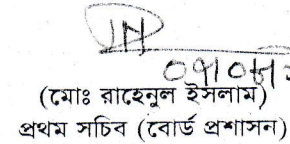 (মোঃ রাহেনুল ইসলাম)
প্রথম সচিব (বোর্ড প্রশাসন)